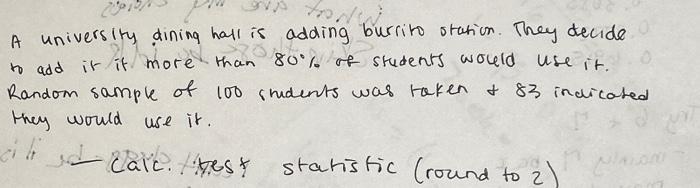 A university dining hall is adding burrito station. They decide
to add it if more than 80% of students would use it.
Random sample of 100 students was taken & 83 indicated
they would use it.
— Calc. test statistic (round to 2)